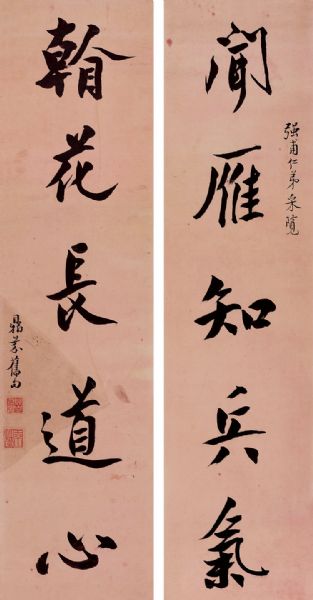 聞雁知兵氣
强甫仁弟采覽
翰花長道心
鼎芬舊句